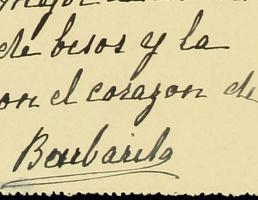 mejor
de besos y la
on el corazon de
Barbarito